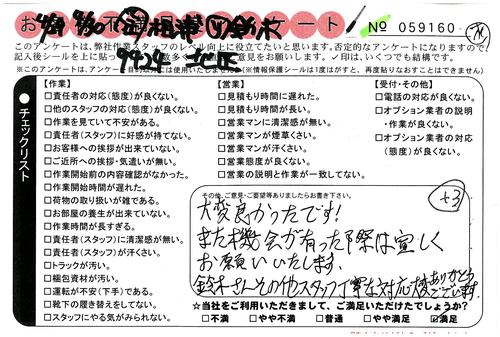 No 059160
このアンケートは、弊社作業スタッフのレベル向上に役立てたいと思います。否定的なアンケートになりますので、
記入後シールを上に
意見をお願いします。✓印は、いくつでも結構です。
※このアンケートは、
使用いたしません
(※情報保護シールは1度がすと、再度貼りなおすことはできません)
チェックリスト
【作業】
□責任者の対応(態度)が良くない。
□他のスタッフの対応(態度)が良くない。
□作業を見ていて不安がある。
□責任者(スタッフ)に好感が持てない。
□お客様への挨拶が出来ていない。
□ご近所への挨拶・気遣いが無い。
□作業開始前の内容確認がなかった。
□作業開始時間が遅れた。
□荷物の取り扱いが雑である。
□お部屋の養生が出来ていない。
□作業時間が長すぎる。
□責任者(スタッフ)に清潔感が無い。
□責任者(スタッフ)が汗くさい。
□トラックが汚い。
□梱包資材が汚い。
□運転が不安(下手)である。
□靴下の履き替えをしてない。
□スタッフにやる気がみられない。
【営業】
□見積もり時間に遅れた。
□見積もり時間が長い。
□営業マンに清潔感が無い。
□営業マンが煙草くさい。
□営業マンが汗くさい。
□営業態度が良くない。
□営業の説明と作業が一致してない。
【受付・その他】
□電話の対応が良くない。
□オプション業者の説明
・作業が良くない。
□オプション業者の対応
(態度)が良くない。
その他、ご意見・ご要望等ありましたらお書き下さい。
大変良かったです!
また機会が有った際は宜しく
お願いいたします。
鈴木さんその他スタッフ丁寧な対応大変ありがとうございます。
+3
☆当社をご利用いただきまして、ご満足いただけたでしょうか?
□不満 □やや不満 □普通 □やや満足 ☑満足